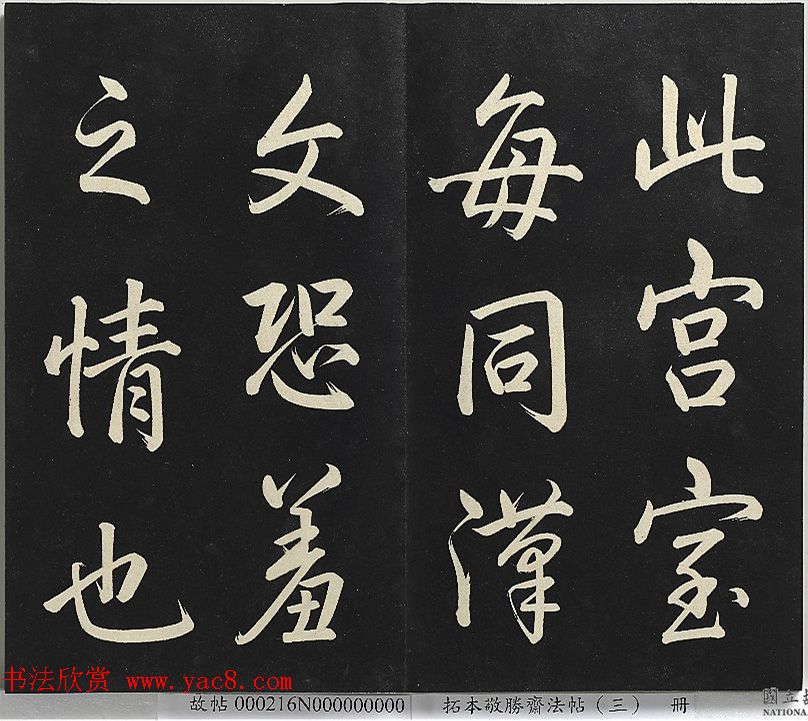 此宫室
每同漢
文恐羞
之情也
书法欣赏 www.yac8.com
故帖 000216N000000000
拓本敬勝齋法帖（三） 册
國立
NATIONA